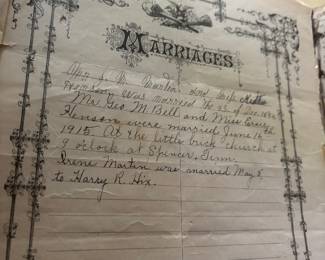 MARRIAGES
J. M. Martin and wife
was married
Mr. Geo. M. Bell and Miss
Henson were married June 16,
1915. At the little brick church at
9 o'clock at Spencer, Tenn.
Irene Martin was married May 5,
to Harry R. Hix.